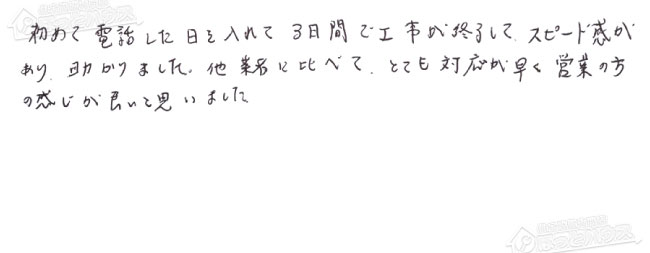 初めて電話した日を入れて3日間で工事が終了して、スピード感が
あり、助かりました。他業者に比べて、とても対応が早く営業の方
の感じが良いと思いました